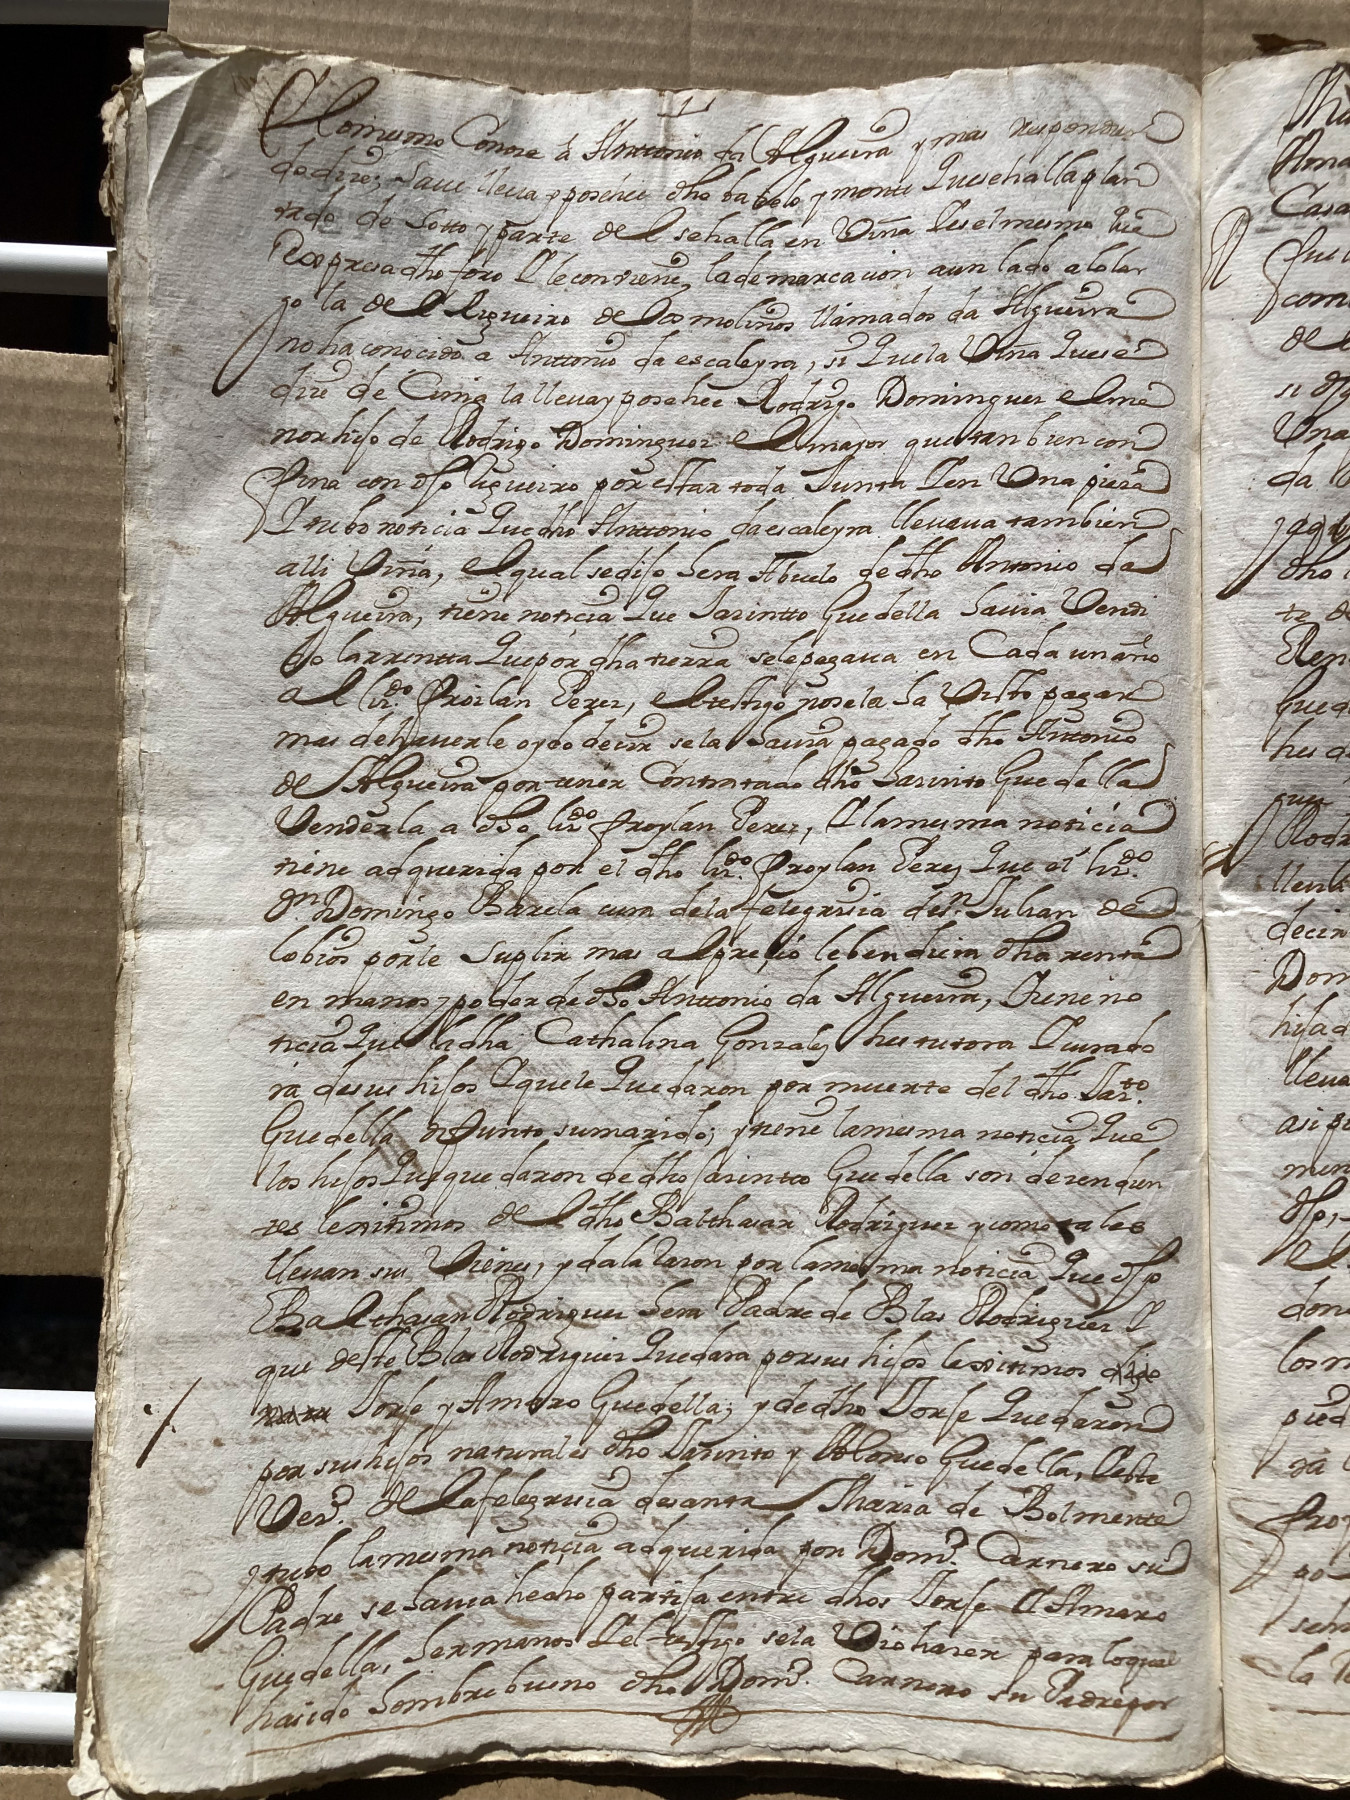 Y lo mismo Conoze a Anttonio da Algueira y mas respondien
do dize; save lleva y posehee dho batelo y monte Que se halla plan
tado de Sotto y parte del se halla en Viña Ques el mismo Que
Rexpresa dho foro Y le contiene, la demarcacion a un lado a lo lar
go la de el lugueiro de los molinos llamados da Algueira
no ha conocido a Anttonio da escaleyra, si Que la Viña Que se
dize de Cima la lleva y posehee Rodrigo Dominguez el me
nor hijo de Rodrigo Dominguez el mayor que tanbien con
fina con dho lugueiro por estar toda Junta Y en Una pieza
Y tubo noticia Que dho Anttonio da escaleyra llevava tambien
alli Viña, el qual se dijo hera Abuelo de dho Antonio da
Algueira, tiene noticia Que Jazintto Guedella havia Vendi
do la rrentta Que por dha tierra se le pagava en Cada un año
a el lizdo. froilan Perez, el testigo no se la ha Visto pagar
mas de haverle oydo dezir se la havia pagado dho Anttonio
de Algueira por tener Contratado dho Jazinto Guedella
Venderla a dho lizdo froylan Perez, Y la mesma noticia
tiene adquerida por el dho lizdo. froylan Perez Que el lizdo.
Dn. Domingo Barela cura de la felegresia de Sn. Julian de
lobios por le suplir mas al precio le bendiera dha renta
en manos y poder de dho Anttonio da Algueira, Y tiene no
ticia Que la dha Cathalina Gonzalez hes tutora Y curado
ra de sus hijos Y que le Quedaron por muerte del dho Jazto.
Guedella difunto su marido; y tiene la mesma noticia Que
los hijos Que quedaron de dho Jazintto Guedella son dezendien
tes lexitimos de el dho Balthasar Rodriguez y como tales
llevan sus Vienes, y da la razon por la mesma noticia Que dho
Balthasar Rodriguez hera Padre de Blas Rodriguez Y
que deste Blas Rodriguez Quedara por sus hijos lexitimos
Jorje y Amaro Guedella; y de dho Jorje Quedaron
por sus hijos naturales dho Jazinto y Alonso Guedella, Y este
Vezo. de la felegresia de santa Maria de Bolmente
y tubo la mesma noticia adquerida por Domo. Carnero su
Padre se havia hecho partija entre dhos Jorje Y Amaro
Guedella, hermanos Y el testigo se la Vio hazer para lo qual
ha sido hombre bueno dho Domo. Carnero su Padre por